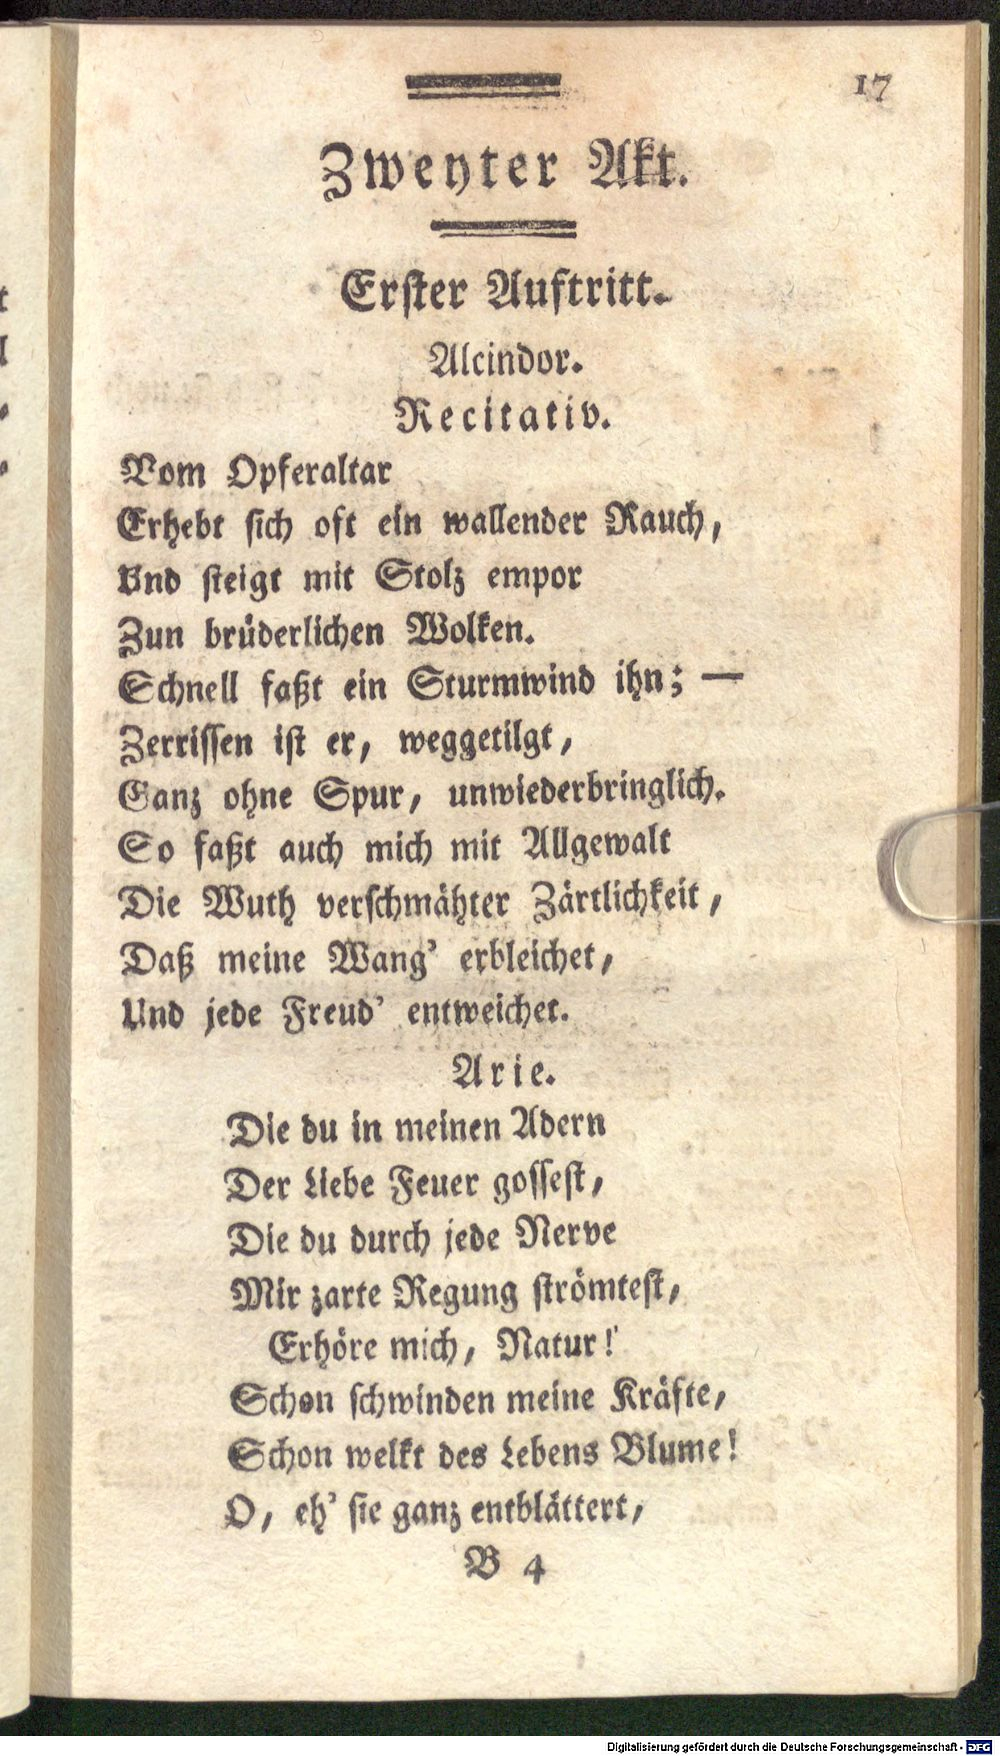 17
Zweyter Akt.
Erster Auftritt.
Alcindor.
Recitativ.
Vom Opferaltar
Erhebt sich oft ein wallender Rauch,
Und steigt mit Stolz empor
Zun brüderlichen Wolken.
Schnell faßt ein Sturmwind ihn; —
Zerrissen ist er, weggetilgt,
Ganz ohne Spur, unwiederbringlich.
So faßt auch mich mit Allgewalt
Die Wuth verschmähter Zärtlichkeit,
Daß meine Wang' erbleichet,
Und jede Freud' entweichet.
Arie.
Die du in meinen Adern
Der Liebe Feuer gossest,
Die du durch jede Nerve
Mir zarte Regung strömtest,
Erhöre mich, Natur!
Schon schwinden meine Kräfte,
Schon welkt des Lebens Blume!
O, eh' sie ganz entblättert,
B 4
Digitalisierung gefördert durch die Deutsche Forschungsgemeinschaft - DFG